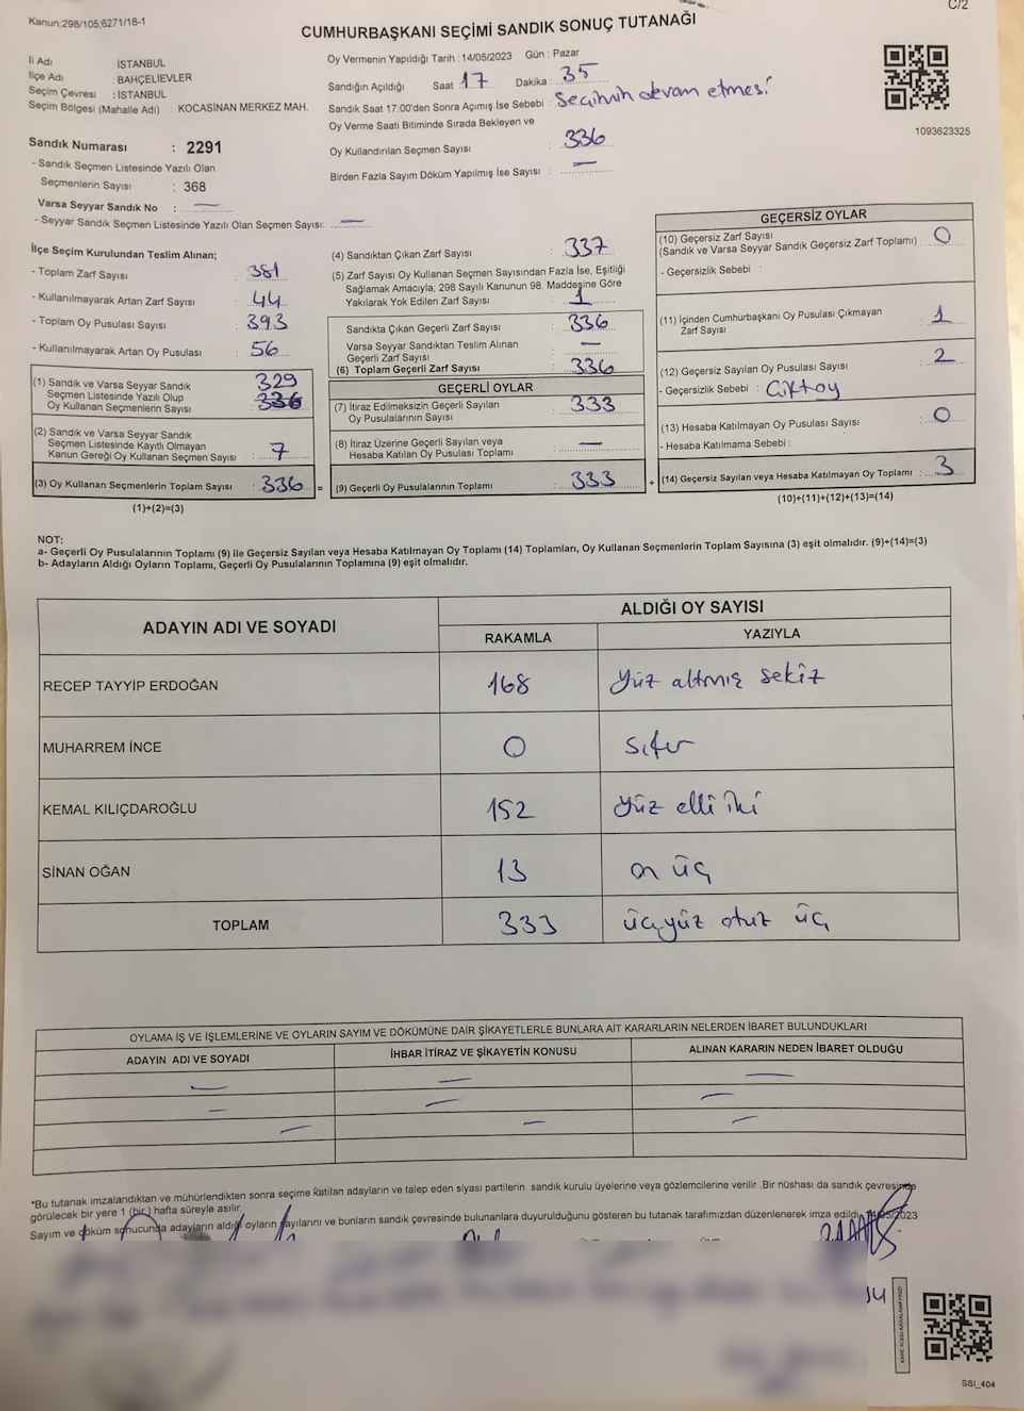 Kanun:298/105;6271/18-1
C/2
CUMHURBAŞKANI SEÇİMİ SANDIK SONUÇ TUTANAĞI
İl Adı : İSTANBUL
İlçe Adı : BAHÇELİEVLER
Seçim Çevresi : İSTANBUL
Seçim Bölgesi (Mahalle Adı) : KOCASİNAN MERKEZ MAH.
Sandık Numarası : 2291
- Sandık Seçmen Listesinde Yazılı Olan
Seçmenlerin Sayısı : 368
Varsa Seyyar Sandık No : —
- Seyyar Sandık Seçmen Listesinde Yazılı Olan Seçmen Sayısı: —
Oy Vermenin Yapıldığı Tarih : 14/05/2023 Gün : Pazar
Sandığın Açıldığı Saat 17 Dakika : 35
Sandık Saat 17:00'den Sonra Açımış İse Sebebi : Seçimin devam etmesi
Oy Verme Saati Bitiminde Sırada Bekleyen ve
Oy Kullandırılan Seçmen Sayısı : 336
Birden Fazla Sayım Döküm Yapılmış İse Sayısı : —
1093623325
İlçe Seçim Kurulundan Teslim Alınan;
- Toplam Zarf Sayısı : 381
- Kullanılmayarak Artan Zarf Sayısı : 44
- Toplam Oy Pusulası Sayısı : 393
- Kullanılmayarak Artan Oy Pusulası : 56
(1) Sandık ve Varsa Seyyar Sandık
Seçmen Listesinde Yazılı Olup
Oy Kullanan Seçmenlerin Sayısı : 329
336
(2) Sandık ve Varsa Seyyar Sandık
Seçmen Listesinde Kayıtlı Olmayan
Kanun Gereği Oy Kullanan Seçmen Sayısı : 7
(3) Oy Kullanan Seçmenlerin Toplam Sayısı : 336 =
(1)+(2)=(3)
(4) Sandıktan Çıkan Zarf Sayısı : 337
(5) Zarf Sayısı Oy Kullanan Seçmen Sayısından Fazla İse, Eşitliği
Sağlamak Amacıyla, 298 Sayılı Kanunun 98. Maddesine Göre
Yakılarak Yok Edilen Zarf Sayısı : 1
Sandıkta Çıkan Geçerli Zarf Sayısı : 336
Varsa Seyyar Sandıktan Teslim Alınan
Geçerli Zarf Sayısı : —
(6) Toplam Geçerli Zarf Sayısı : 336
GEÇERLİ OYLAR
(7) İtiraz Edilmeksizin Geçerli Sayılan
Oy Pusulalarının Sayısı : 333
(8) İtiraz Üzerine Geçerli Sayılan veya
Hesaba Katılan Oy Pusulası Toplamı : —
(9) Geçerli Oy Pusulalarının Toplamı : 333 +
GEÇERSİZ OYLAR
(10) Geçersiz Zarf Sayısı
(Sandık ve Varsa Seyyar Sandık Geçersiz Zarf Toplamı) : 0
- Geçersizlik Sebebi :
(11) İçinden Cumhurbaşkanı Oy Pusulası Çıkmayan
Zarf Sayısı : 1
(12) Geçersiz Sayılan Oy Pusulası Sayısı : 2
- Geçersizlik Sebebi : Çiftoy
(13) Hesaba Katılmayan Oy Pusulası Sayısı : 0
- Hesaba Katılmama Sebebi :
(14) Geçersiz Sayılan veya Hesaba Katılmayan Oy Toplamı : 3
(10)+(11)+(12)+(13)=(14)
NOT:
a- Geçerli Oy Pusulalarının Toplamı (9) ile Geçersiz Sayılan veya Hesaba Katılmayan Oy Toplamı (14) Toplamları, Oy Kullanan Seçmenlerin Toplam Sayısına (3) eşit olmalıdır. (9)+(14)=(3)
b- Adayların Aldığı Oyların Toplamı, Geçerli Oy Pusulalarının Toplamına (9) eşit olmalıdır.
ADAYIN ADI VE SOYADI
ALDIĞI OY SAYISI
RAKAMLA YAZIYLA
RECEP TAYYİP ERDOĞAN 168 Yüz altmış sekiz
MUHARREM İNCE 0 Sıfır
KEMAL KILIÇDAROĞLU 152 Yüz elli iki
SİNAN OĞAN 13 on üç
TOPLAM 333 üçyüz otuz üç
OYLAMA İŞ VE İŞLEMLERİNE VE OYLARIN SAYIM VE DÖKÜMÜNE DAİR ŞİKAYETLERLE BUNLARA AİT KARARLARIN NELERDEN İBARET BULUNDUKLARI
ADAYIN ADI VE SOYADI İHBAR İTİRAZ VE ŞİKAYETİN KONUSU ALINAN KARARIN NEDEN İBARET OLDUĞU
— — —
— — —
— — —
*Bu tutanak imzalandıktan ve mühürlendikten sonra seçime katılan adayların ve talep eden siyasi partilerin sandık kurulu üyelerine veya gözlemcilerine verilir .Bir nüshası da sandık çevresinde
görülecek bir yere 1 (bir) hafta süreyle asılır.
Sayım ve döküm sonucunda adayların aldığı oyların sayılarını ve bunların sandık çevresinde bulunanlara duyurulduğunu gösteren bu tutanak tarafımızdan düzenlenerek imza edildi.
SSI_404